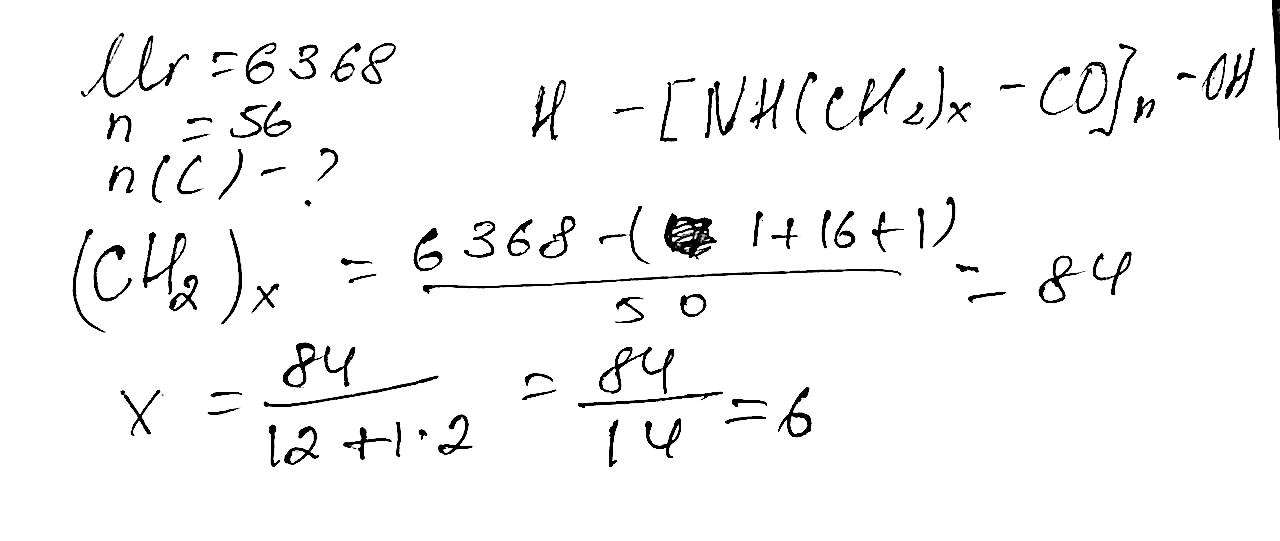 Mr = 6368
n = 56
n(C) - ?
H - [NH(CH₂)ₓ - CO]ₙ - OH
(CH₂)ₓ = (6368 - (1 + 16 + 1)) / 50 = 84
x = 84 / (12 + 1·2) = 84 / 14 = 6